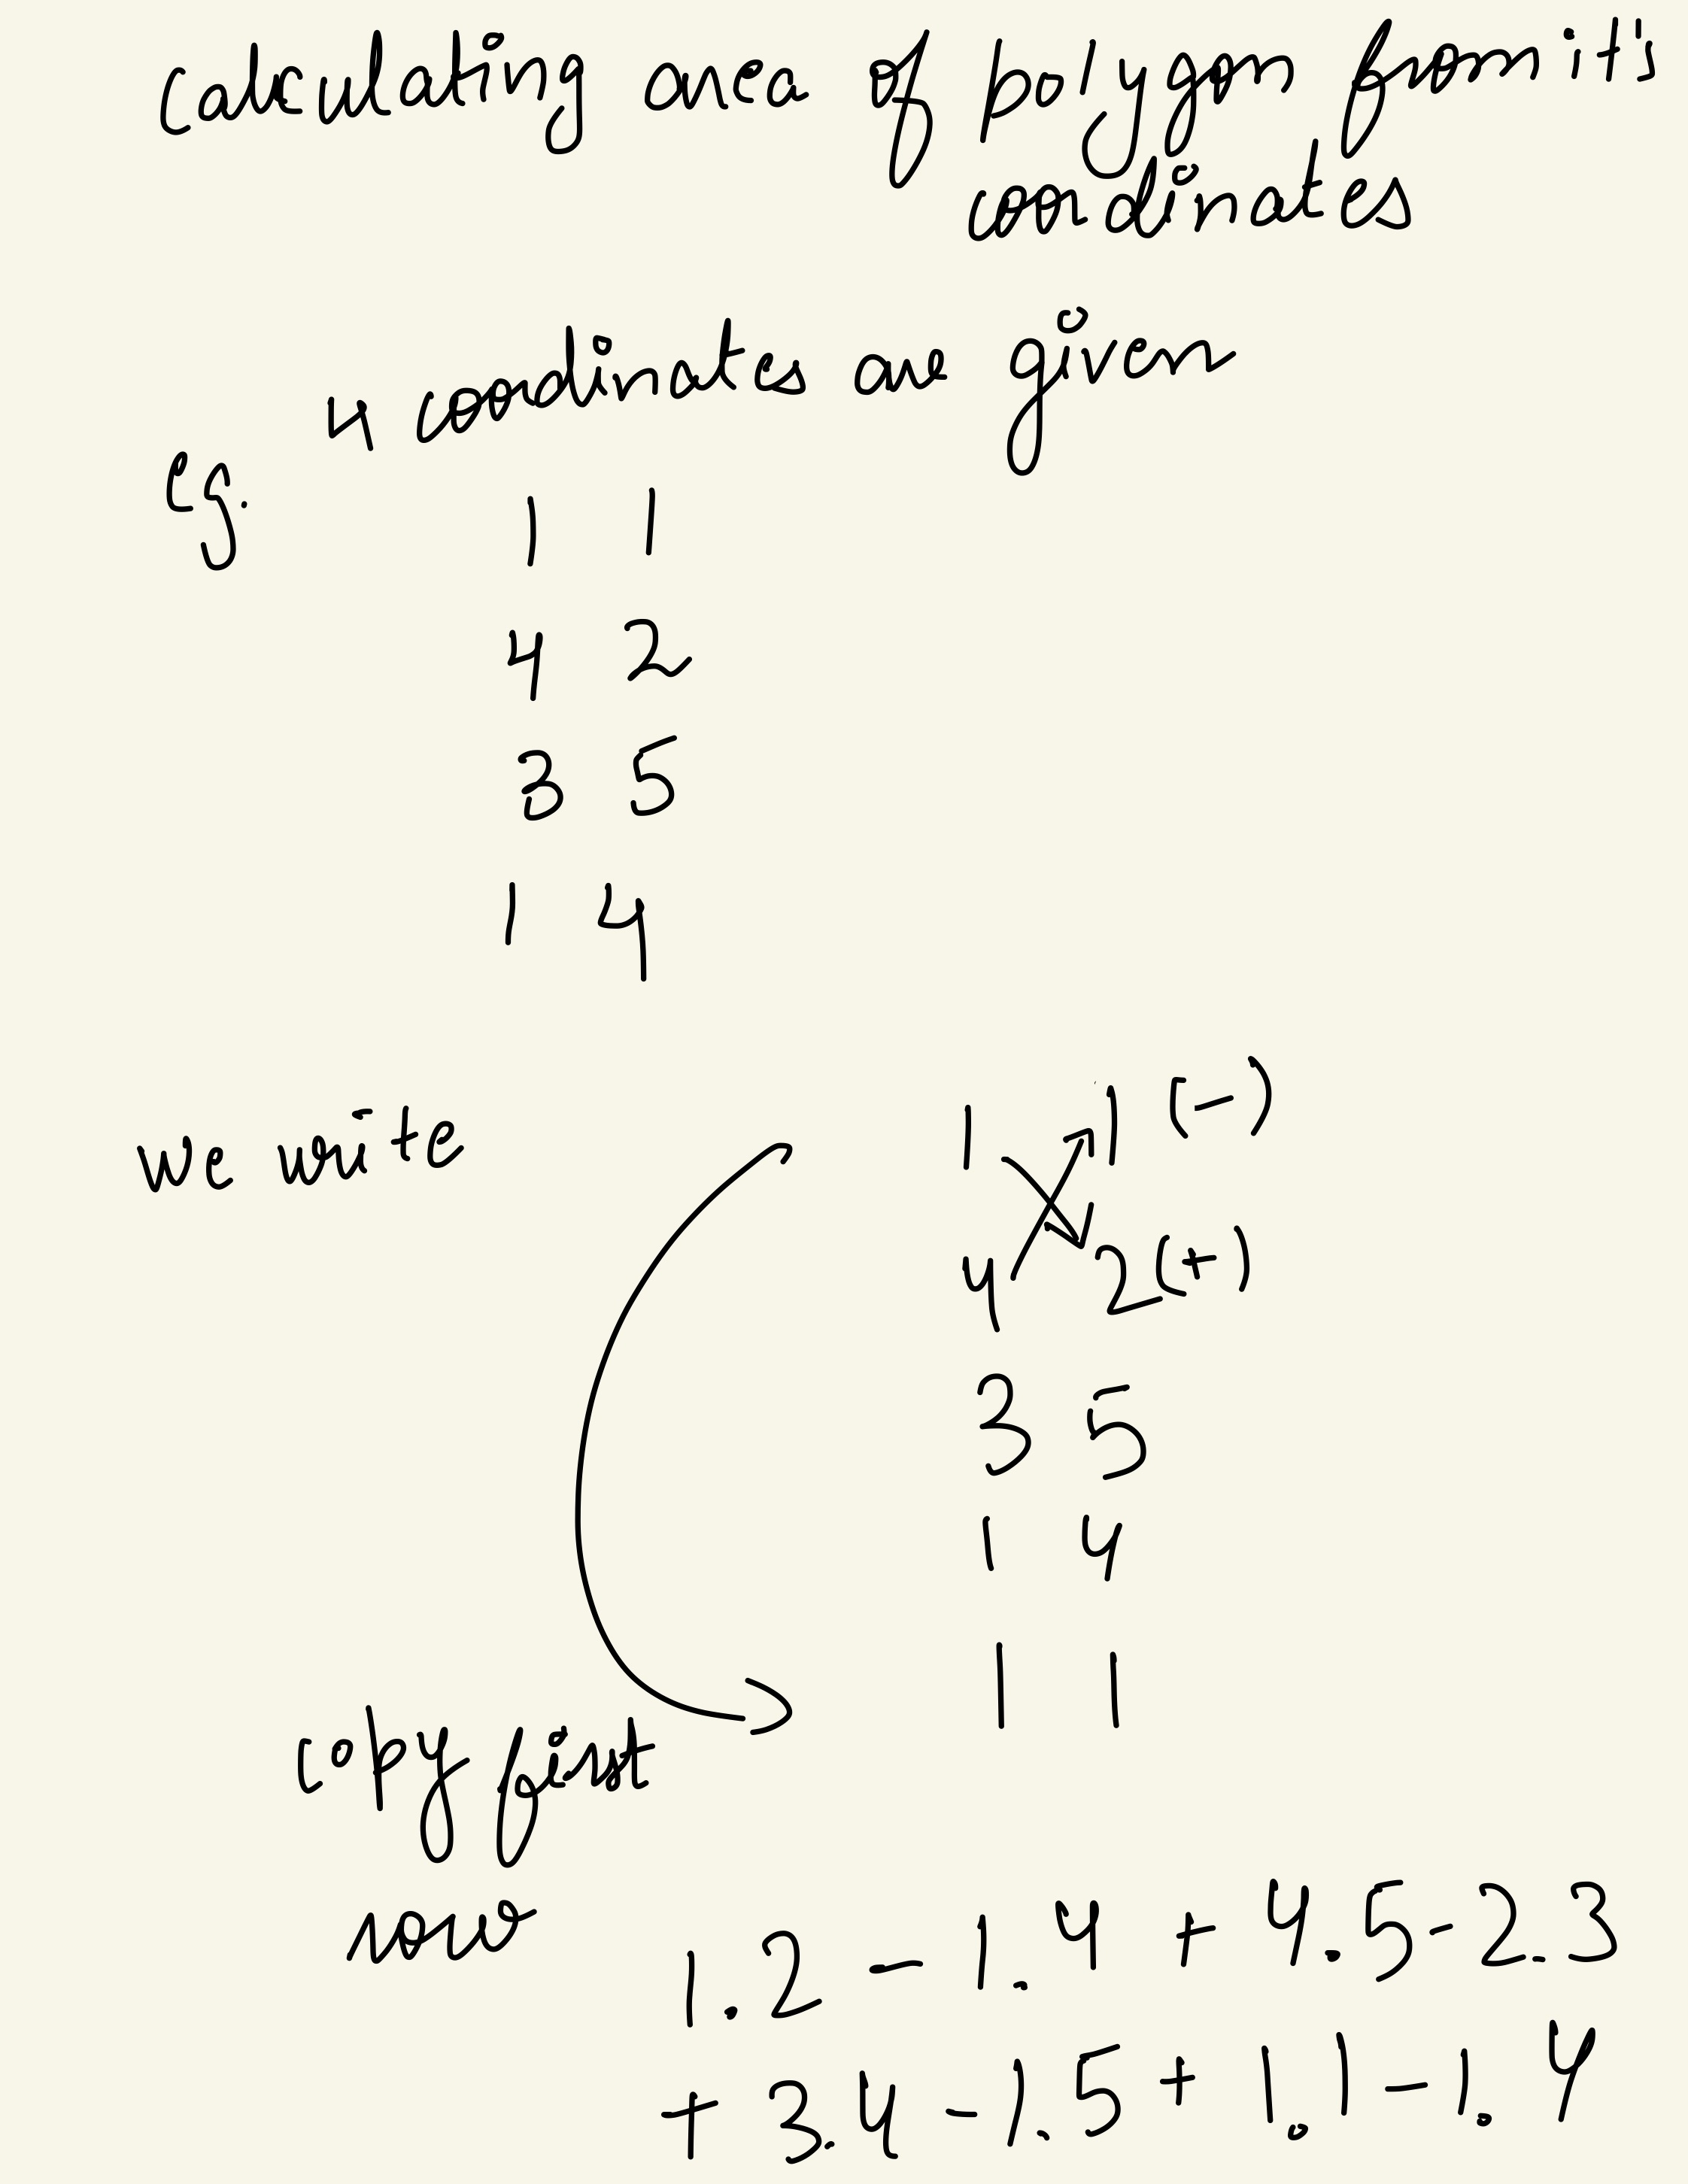 Calculating area of polygon from it's
coordinates
4 coordinates are given
eg.
1 1
4 2
3 5
1 4
we write
1 1 (-)
4 2 (+)
3 5
1 4
1 1
copy first
now
1.2 - 1.4 + 4.5 - 2.3
+ 3.4 - 1.5 + 1.1 - 1.4